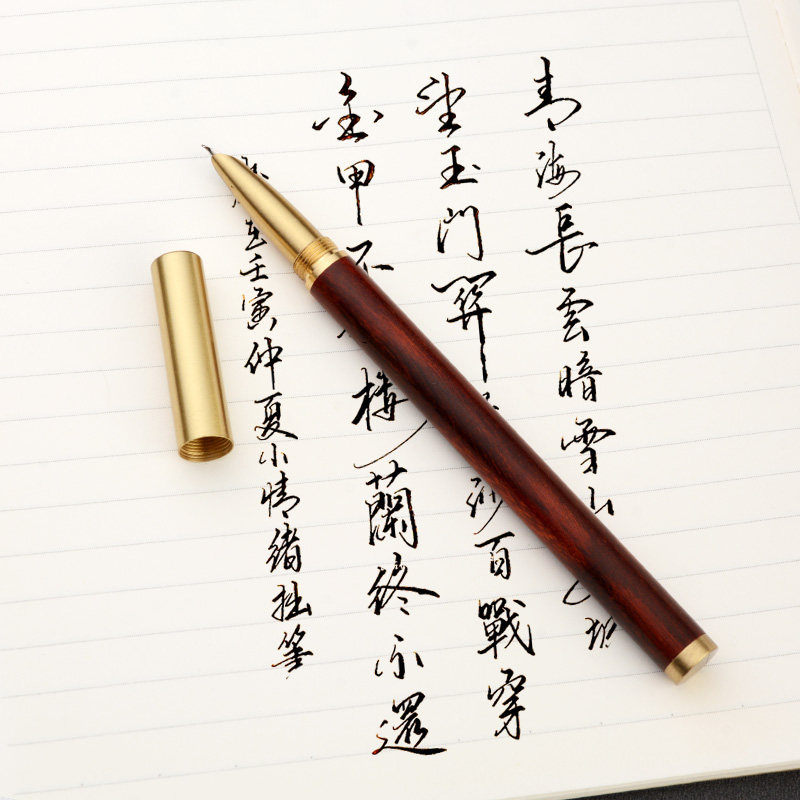 青海長雲暗雪山
望玉門關沙百戰穿
金甲不樓蘭終不還
在壬寅仲夏小情緒拙筆